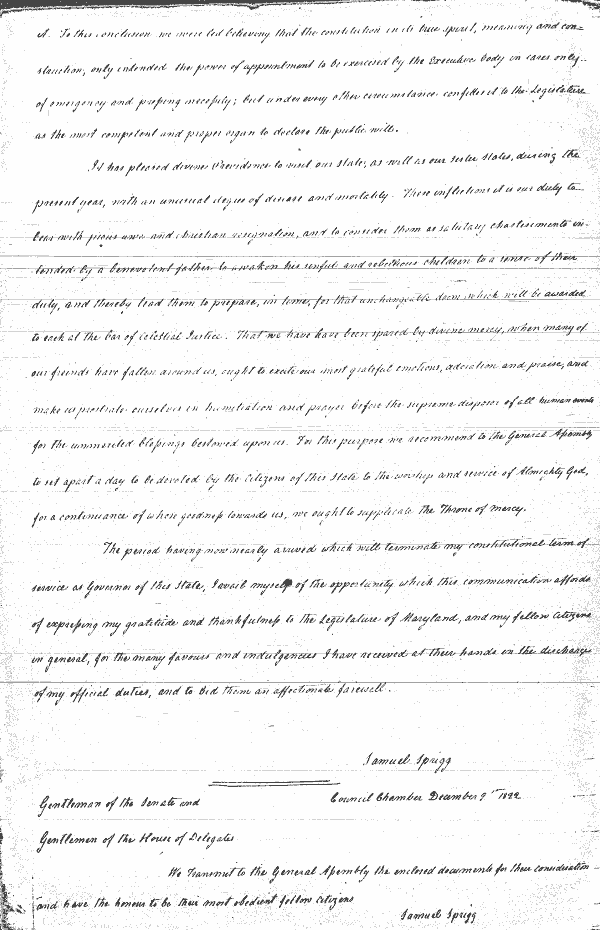 it. To this conclusion we were led believing that the constitution in its true spirit, meaning and con=
struction, only intended the power of appointment to be exercised by the Executive body in cases only
of emergency and pressing necessity; but under every other circumstance confided it to the Legislature
as the most competent and proper organ to declare the public will.
It has pleased divine Providence to visit our state, as well as our sister States, during the
present year, with an unusual degree of disease and mortality. These inflictions it is our duty to
bear with pious awe and christian resignation, and to consider them as salutary chastisements in-
tended by a benevolent father to awaken his sinful and rebellious children to a sense of their
duty, and thereby lead them to prepare, in time, for that unchangeable doom which will be awarded
to each at the bar of Celestial Justice. That we have have been spared by divine mercy, when many of
our friends have fallen around us, ought to excite our most grateful emotions, adoration and praise, and
make us prostrate ourselves in humiliation and prayer before the supreme disposer of all human events
for the unmerited blessings bestowed upon us. For this purpose we recommend to the General Assembly
to set apart a day to be devoted by the Citizens of this State to the worship and service of Almighty God,
for a continuance of whose goodness towards us, we ought to supplicate the Throne of mercy.
The period having now nearly arrived which will terminate my constitutional term of
service as Governor of this State, I avail myself of the opportunity which this communication affords
of expressing my gratitude and thankfulness to the Legislature of Maryland, and my fellow Citizens
in general, for the many favours and indulgencies I have received at their hands in the discharge
of my official duties, and to bid them an affectionate farewell.
Samuel Sprigg
Council Chamber December 9th 1822
Gentleman of the Senate and
Gentlemen of the House of Delegates
We Transmit to the General Assembly the enclosed documents for their consideration
and have the honour to be their most obedient fellow citizens
Samuel Sprigg